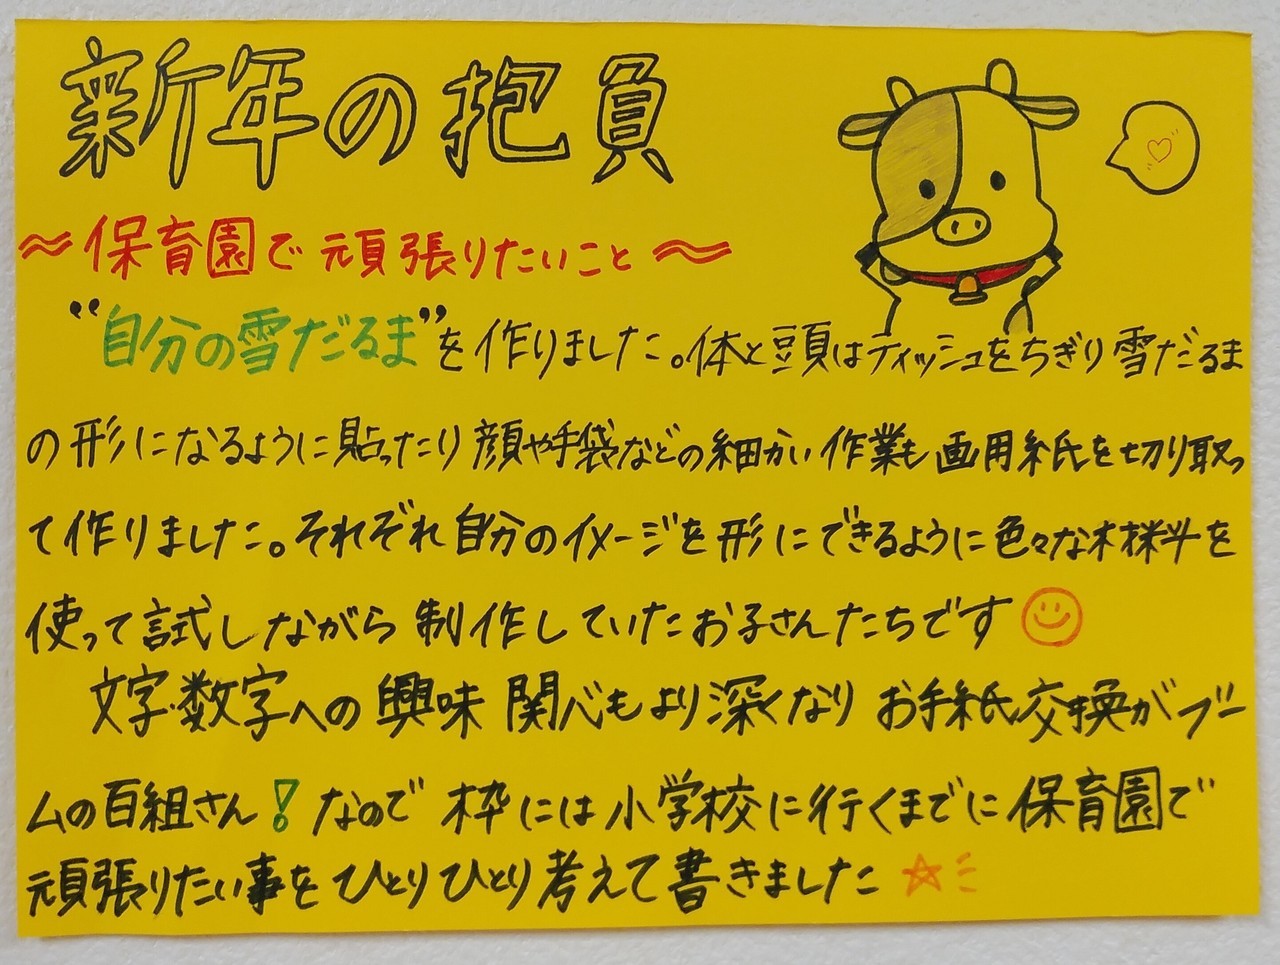 新年の抱負
〜保育園で頑張りたいこと〜
“自分の雪だるま”を作りました。体と頭はティッシュをちぎり雪だるま
の形になるように貼ったり顔や手袋などの細かい作業も画用紙を切り取っ
て作りました。それぞれ自分のイメージを形にできるように色々な材料を
使って試しながら制作していたお子さんたちです
文字・数字への興味関心もより深くなりお手紙交換がブー
ムの百組さん!なので枠には小学校に行くまでに保育園で
頑張りたい事をひとりひとり考えて書きました☆